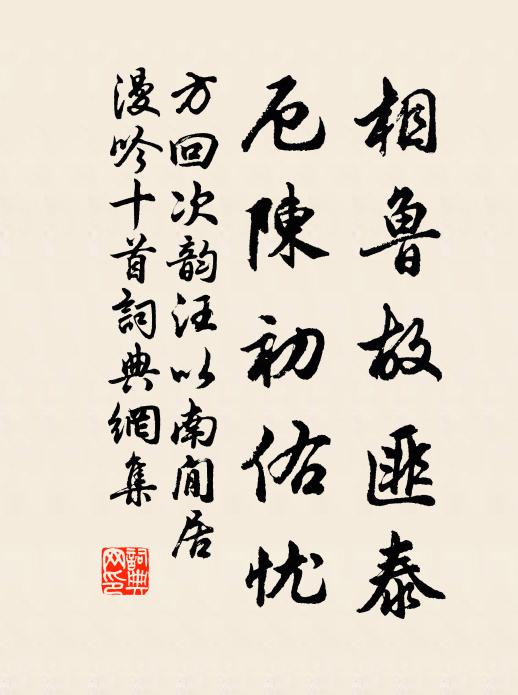 相魯故匪泰
厄陳初佑忧
方回次韵汪以南閒居
漫吟十首詞典網集
詞典网印